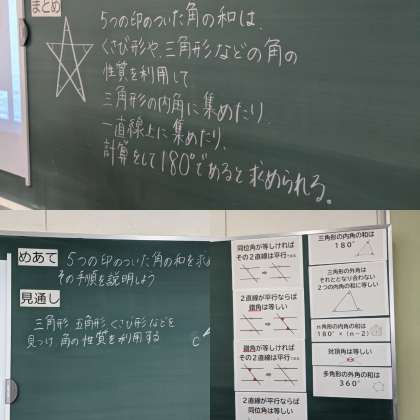 まとめ
5つの印のついた角の和は、
くさび形や、三角形などの角の
性質を利用して
三角形の内角に集めたり、
一直線上に集めたり、
計算をして180°であると求められる。
めあて
5つの印のついた角の和を求め
その手順を説明しよう
見通し
三角形 五角形 くさび形などを
見つけ 角の性質を利用する
C
同位角が等しければ
その2直線は平行である
2直線が平行ならば
錯角は等しい
錯角が等しければ
その2直線は平行である
2直線が平行ならば
同位角は等しい
三角形の内角の和は
180°
三角形の外角は
それととなり合わない
2つの内角の和に等しい
n角形の内角の和は
180°×(n-2)
対頂角は等しい
多角形の外角の和は
360°